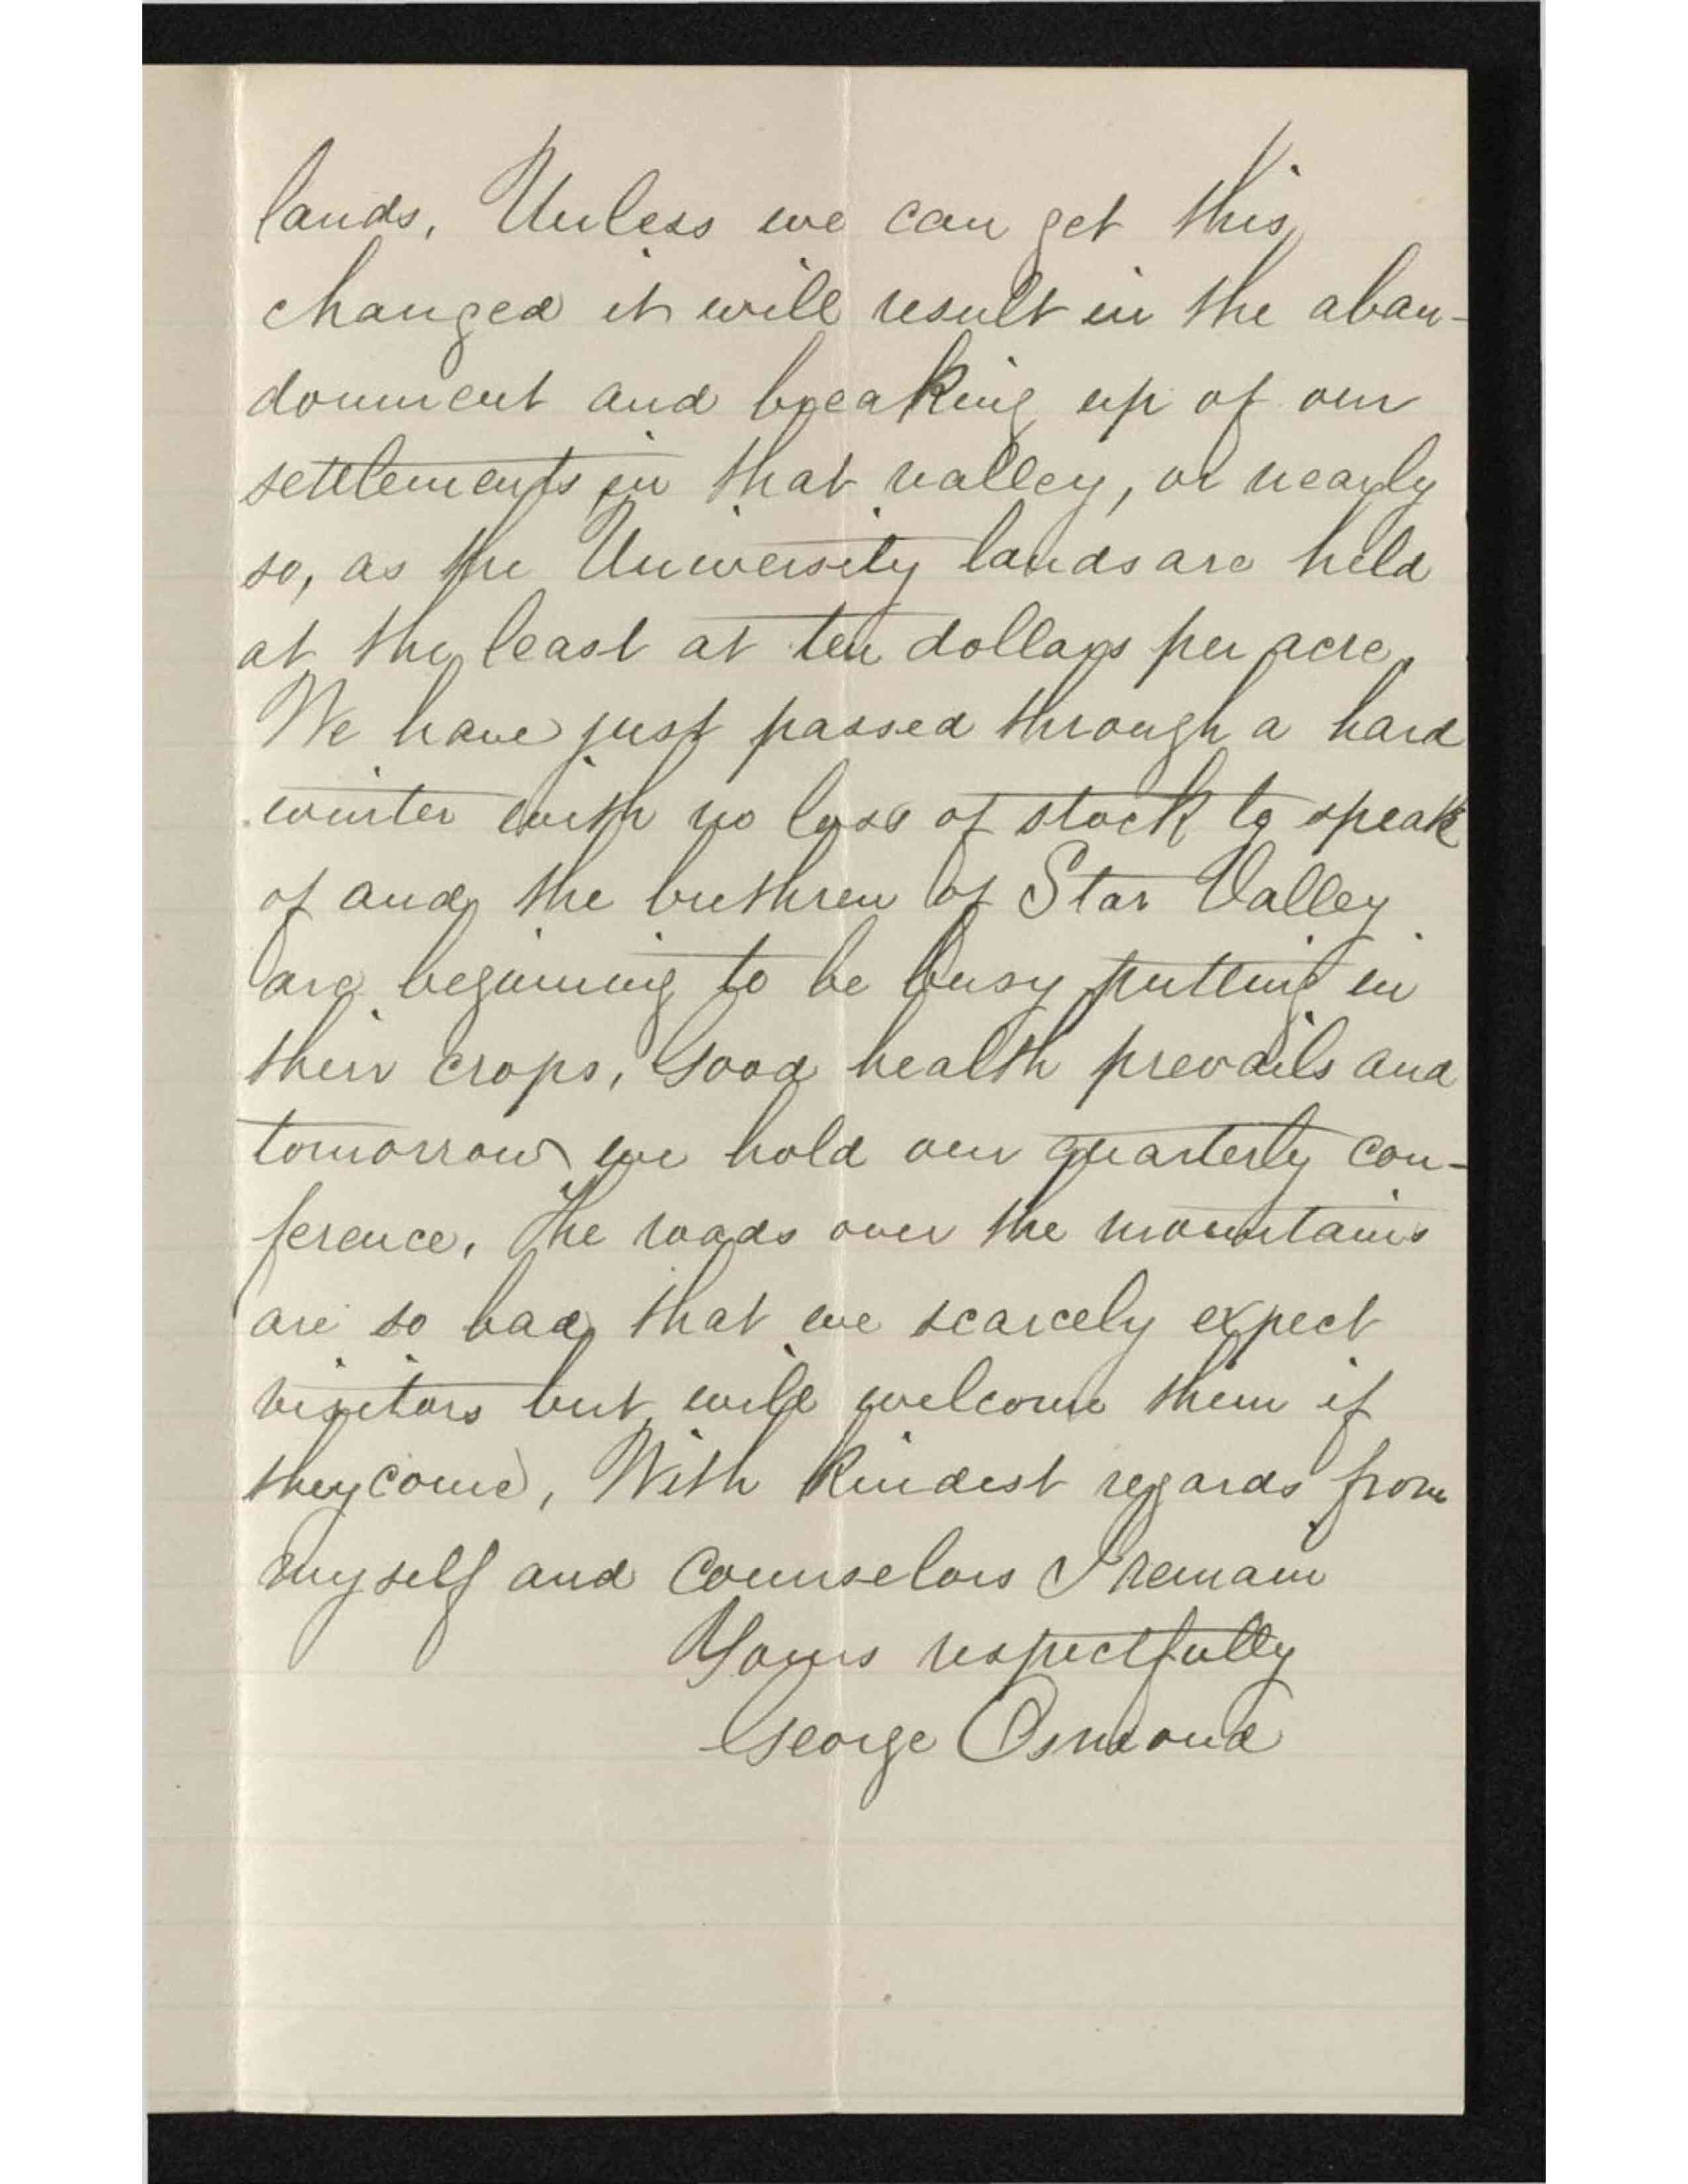 lands, Unless we can get this
changed it will result in the aban-
donment and breaking up of our
settlements in that valley, or nearly
so, as the University lands are held
at the least at ten dollars per acre,
We have just passed through a hard
winter with no loss of stock to speak
of and the brethren of Star Valley
are beginning to be busy putting in
their crops, Good health prevails and
tomorrow we hold our quarterly con-
ference, The roads over the mountains
are so bad that we scarcely expect
visitors but will welcome them if
they come, With kindest regards from
myself and Counselors I remain
Yours respectfully
George Osmond